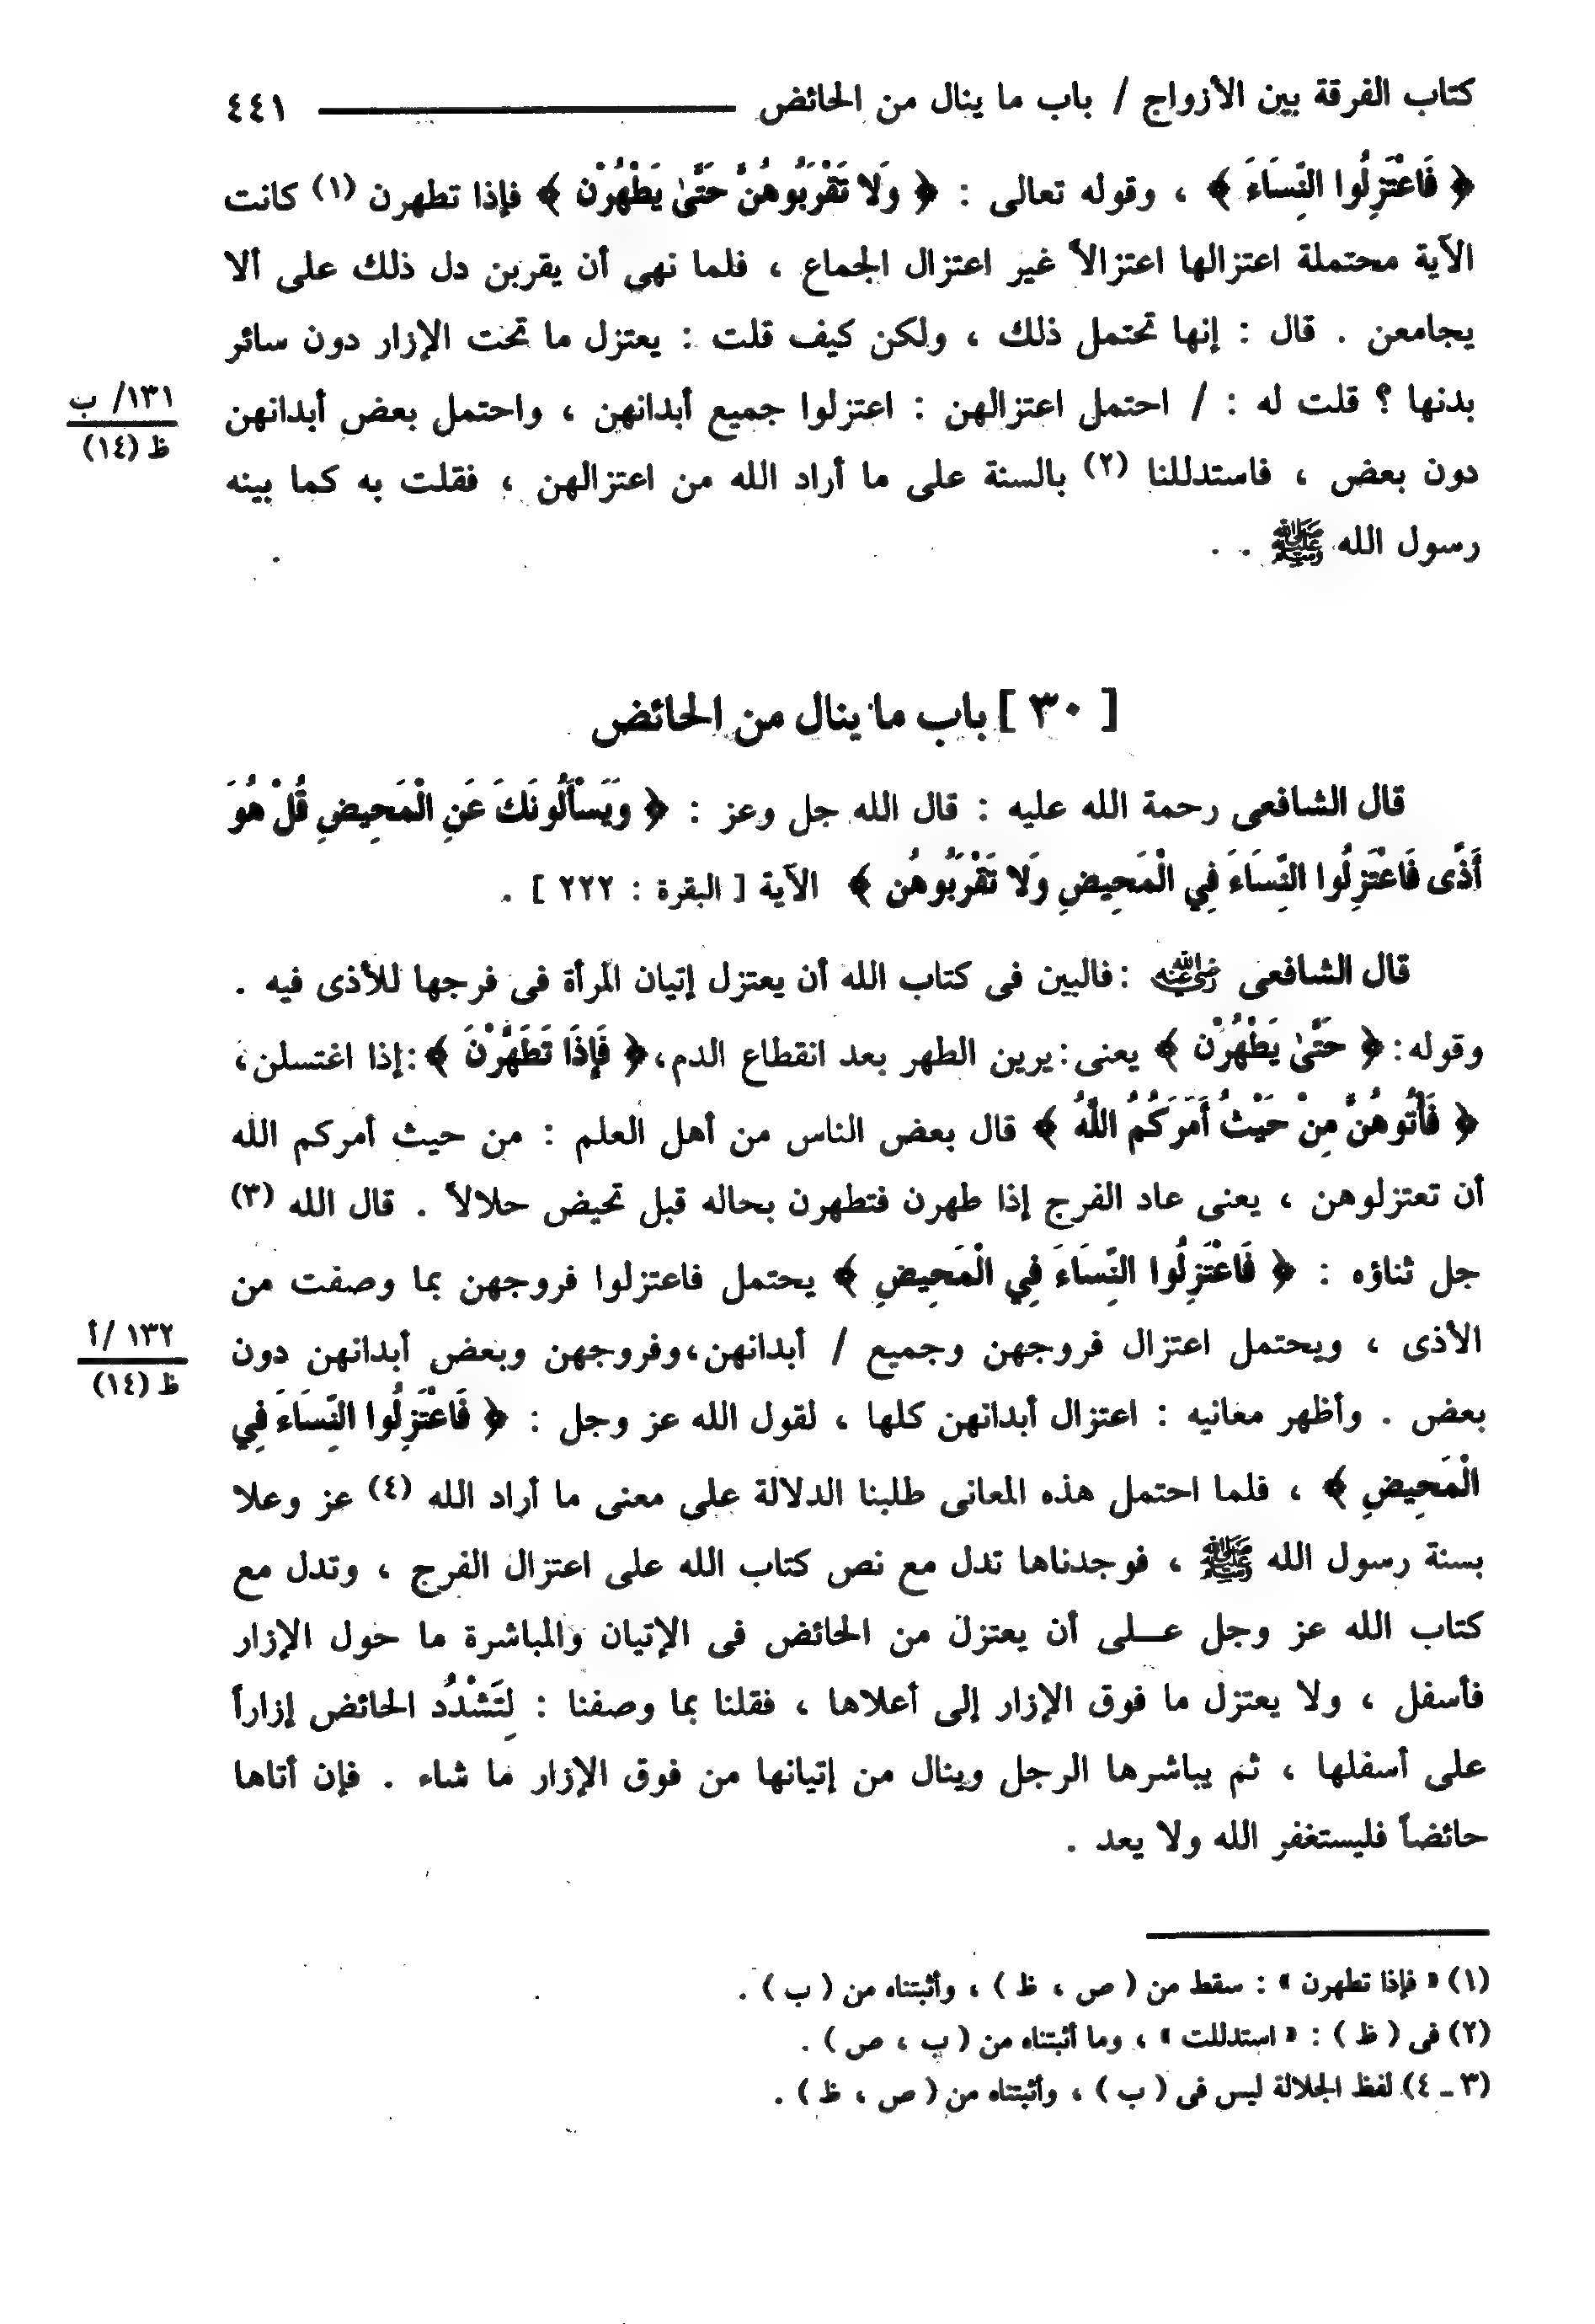 كتاب الفرقة بين الأزواج / باب ما ينال من الحائض ٤٤١
﴿ فَاعْتَزِلُوا النِّسَاءَ ﴾ ، وقوله تعالى : ﴿ وَلا تَقْرَبُوهُنَّ حَتَّىٰ يَطْهُرْن ﴾ فإذا تطهرن (١) كانت
الآية محتملة اعتزالها اعتزالاً غير اعتزال الجماع ، فلما نهى أن يقربن دل ذلك على ألا
يجامعن . قال : إنها تحتمل ذلك ، ولكن كيف قلت : يعتزل ما تحت الإزار دون سائر
بدنها ؟ قلت له : / احتمل اعتزالهن : اعتزلوا جميع أبدانهن ، واحتمل بعض أبدانهن
١٣١/ ب
ظ (١٤)
دون بعض ، فاستدللنا (٢) بالسنة على ما أراد الله من اعتزالهن ، فقلت به كما بينه
رسول الله ﷺ .
[ ٣٠ ] باب ما ينال من الحائض
قال الشافعى رحمة الله عليه : قال الله جل وعز : ﴿ وَيَسْأَلُونَكَ عَنِ الْمَحِيضِ قُلْ هُوَ
أَذًى فَاعْتَزِلُوا النِّسَاءَ فِي الْمَحِيضِ وَلا تَقْرَبُوهُن ﴾ الآية [ البقرة : ٢٢٢ ] .
قال الشافعى رَضِيَ اللهُ عَنْهُ : فالبين فى كتاب الله أن يعتزل إتيان المرأة فى فرجها للأذى فيه .
وقوله: ﴿ حَتَّىٰ يَطْهُرْن ﴾ يعنى: يرين الطهر بعد انقطاع الدم، ﴿ فَإِذَا تَطَهَّرْنَ ﴾: إذا اغتسلن،
﴿ فَأْتُوهُنَّ مِنْ حَيْثُ أَمَرَكُمُ اللَّهُ ﴾ قال بعض الناس من أهل العلم : من حيث أمركم الله
أن تعتزلوهن ، يعنى عاد الفرج إذا طهرن فتطهرن بحاله قبل تحيض حلالاً . قال الله (٣)
جل ثناؤه : ﴿ فَاعْتَزِلُوا النِّسَاءَ فِي الْمَحِيضِ ﴾ يحتمل فاعتزلوا فروجهن بما وصفت من
الأذى ، ويحتمل اعتزال فروجهن وجميع / أبدانهن، وفروجهن وبعض أبدانهن دون
١٣٢ /أ
ظ (١٤)
بعض . وأظهر معانيه : اعتزال أبدانهن كلها ، لقول الله عز وجل : ﴿ فَاعْتَزِلُوا النِّسَاءَ فِي
الْمَحِيضِ ﴾ ، فلما احتمل هذه المعانى طلبنا الدلالة على معنى ما أراد الله (٤) عز وعلا
بسنة رسول الله ﷺ ، فوجدناها تدل مع نص كتاب الله على اعتزال الفرج ، وتدل مع
كتاب الله عز وجل عـلى أن يعتزل من الحائض فى الإتيان والمباشرة ما حول الإزار
فأسفل ، ولا يعتزل ما فوق الإزار إلى أعلاها ، فقلنا بما وصفنا : لِتَشْدُد الحائض إزاراً
على أسفلها ، ثم يباشرها الرجل وينال من إتيانها من فوق الإزار ما شاء . فإن أتاها
حائضاً فليستغفر الله ولا يعد .
(١) « فإذا تطهرن » : سقط من ( ص ، ظ ) ، وأثبتناه من ( ب ) .
(٢) فى ( ظ ) : « استدللت » ، وما أثبتناه من ( ب ، ص ) .
(٣ ـ ٤) لفظ الجلالة ليس فى ( ب ) ، وأثبتناه من ( ص ، ظ ) .